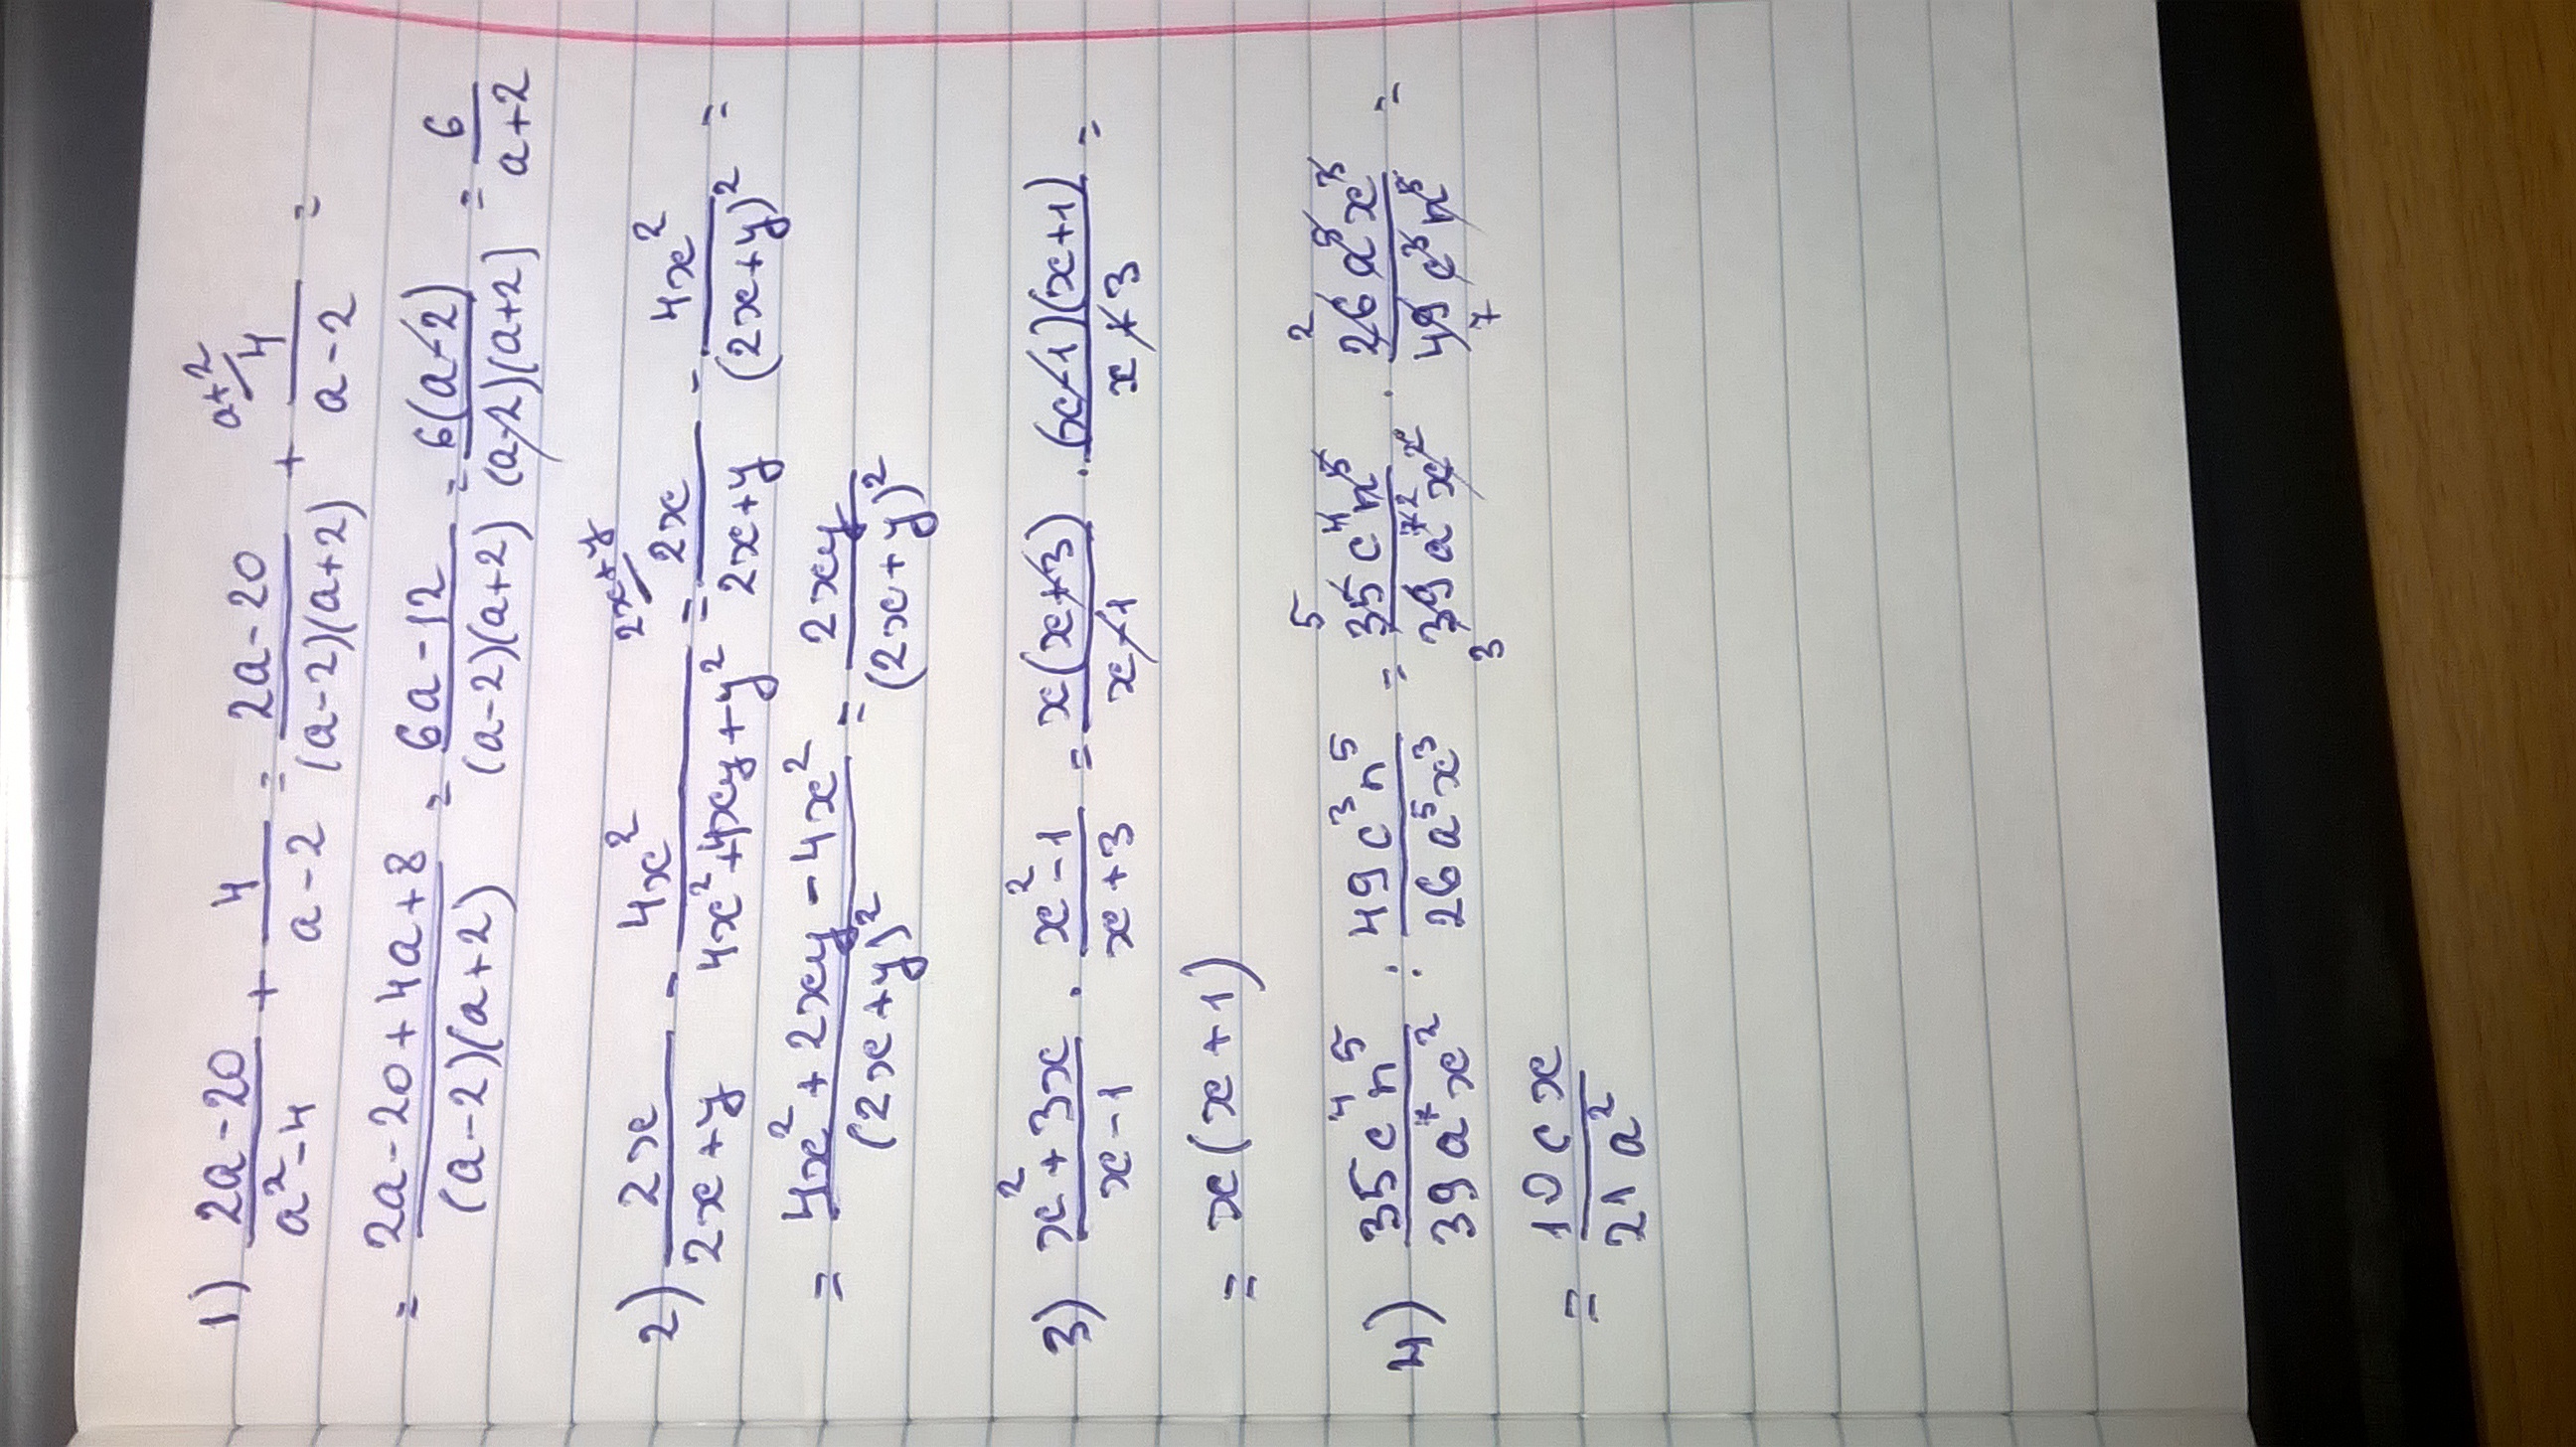 1) (2a-20)/(a²-4) + 4/(a-2) = (2a-20)/((a-2)(a+2)) + (a+2/ 4)/(a-2) =
= (2a-20+4a+8)/((a-2)(a+2)) = (6a-12)/((a-2)(a+2)) = (6(a-2))/((a-2)(a+2)) = 6/(a+2)
2) 2x/(2x+y) - 4x²/(4x²+4xy+y²) = (2x+y/ 2x)/(2x+y) - 4x²/(2x+y)² =
= (4x²+2xy-4x²)/(2x+y)² = 2xy/(2x+y)²
3) (x²+3x)/(x-1) · (x²-1)/(x+3) = (x(x+3))/(x-1) · ((x-1)(x+1))/(x+3) =
= x(x+1)
4) (35c⁴n⁵)/(39a⁷x²) : (49c³n⁵)/(26a⁵x³) = (35c⁴n⁵)/(39a⁷x²) · (26a⁵x³)/(49c³n⁵) =
= (10cx)/(21a²)